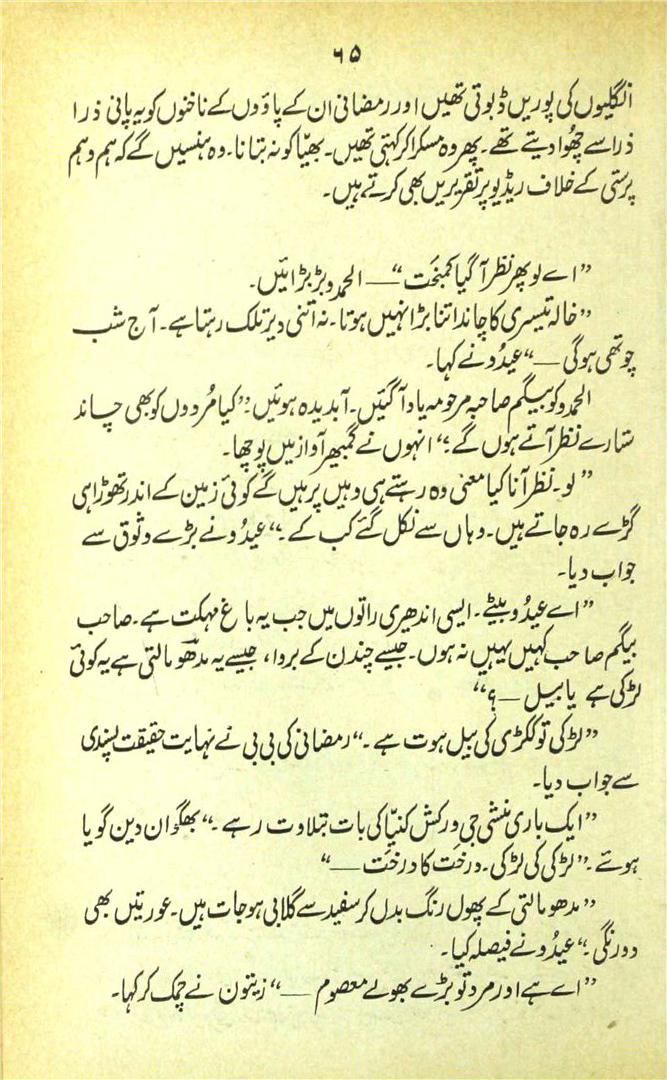 ۶۵
انگلیوں کی پوریں ڈبوتی تھیں اور رمضانی ان کے پاؤں کے ناخنوں کو یہ پانی ذرا
ذرا سے چھُوا دیتے تھے۔ پھر وہ مسکرا کر کہتی تھیں۔ بھیّا کو نہ بتانا۔ وہ ہنسیں گے کہ ہم وہم
پرستی کے خلاف ریڈیو پر تقریریں بھی کرتے ہیں۔
”اے لو پھر نظر آ گیا کمبخت“ — الحمدو بڑبڑائیں۔
”خالہ تیسری کا چاند اتنا بڑا نہیں ہوتا۔ نہ اتنی دیر تلک رہتا ہے۔ آج شب
چوتھی ہوگی —“ عیدُو نے کہا۔
الحمدو کو بیگم صاحبہ مرحومہ یاد آ گئیں۔ آبدیدہ ہوئیں: ”کیا مُردوں کو بھی چاند
ستارے نظر آتے ہوں گے۔“ انہوں نے گمبھیر آواز میں پوچھا۔
”لو۔ نظر آنا کیا معنی وہ رہتے ہی وہیں پر ہیں گے کوئی زمین کے اندر تھوڑا ہی
گڑے رہ جاتے ہیں۔ وہاں سے نکل گئے کب کے۔“ عیدُو نے بڑے وثوق سے
جواب دیا۔
”اے عیدُو بیٹے۔ ایسی اندھیری راتوں میں جب یہ باغ مہکت ہے۔ صاحب
بیگم صاحب کہیں یہیں نہ ہوں۔ جیسے چندن کے بروا، جیسے یہ مدھو مالتی ہے یہ کوئی
لڑکی ہے یا بیل — ؟“
”لڑکی تو ککڑی کی بیل ہوت ہے۔“ رمضانی کی بی بی نے نہایت حقیقت پسندی
سے جواب دیا۔
”ایک باری منشی جی ورکش کنیّا کی بات بتلاوت رہے۔“ بھگوان دین گویا
ہوئے۔ ”لڑکی کی لڑکی۔ درخت کا درخت —“
”مدھو مالتی کے پھول رنگ بدل کر سفید سے گلابی ہو جات ہیں۔ عورتیں بھی
دو رنگی۔“ عیدُو نے فیصلہ کیا۔
”اے ہے اور مرد تو بڑے بھولے معصوم —“ زیتون نے چمک کر کہا۔